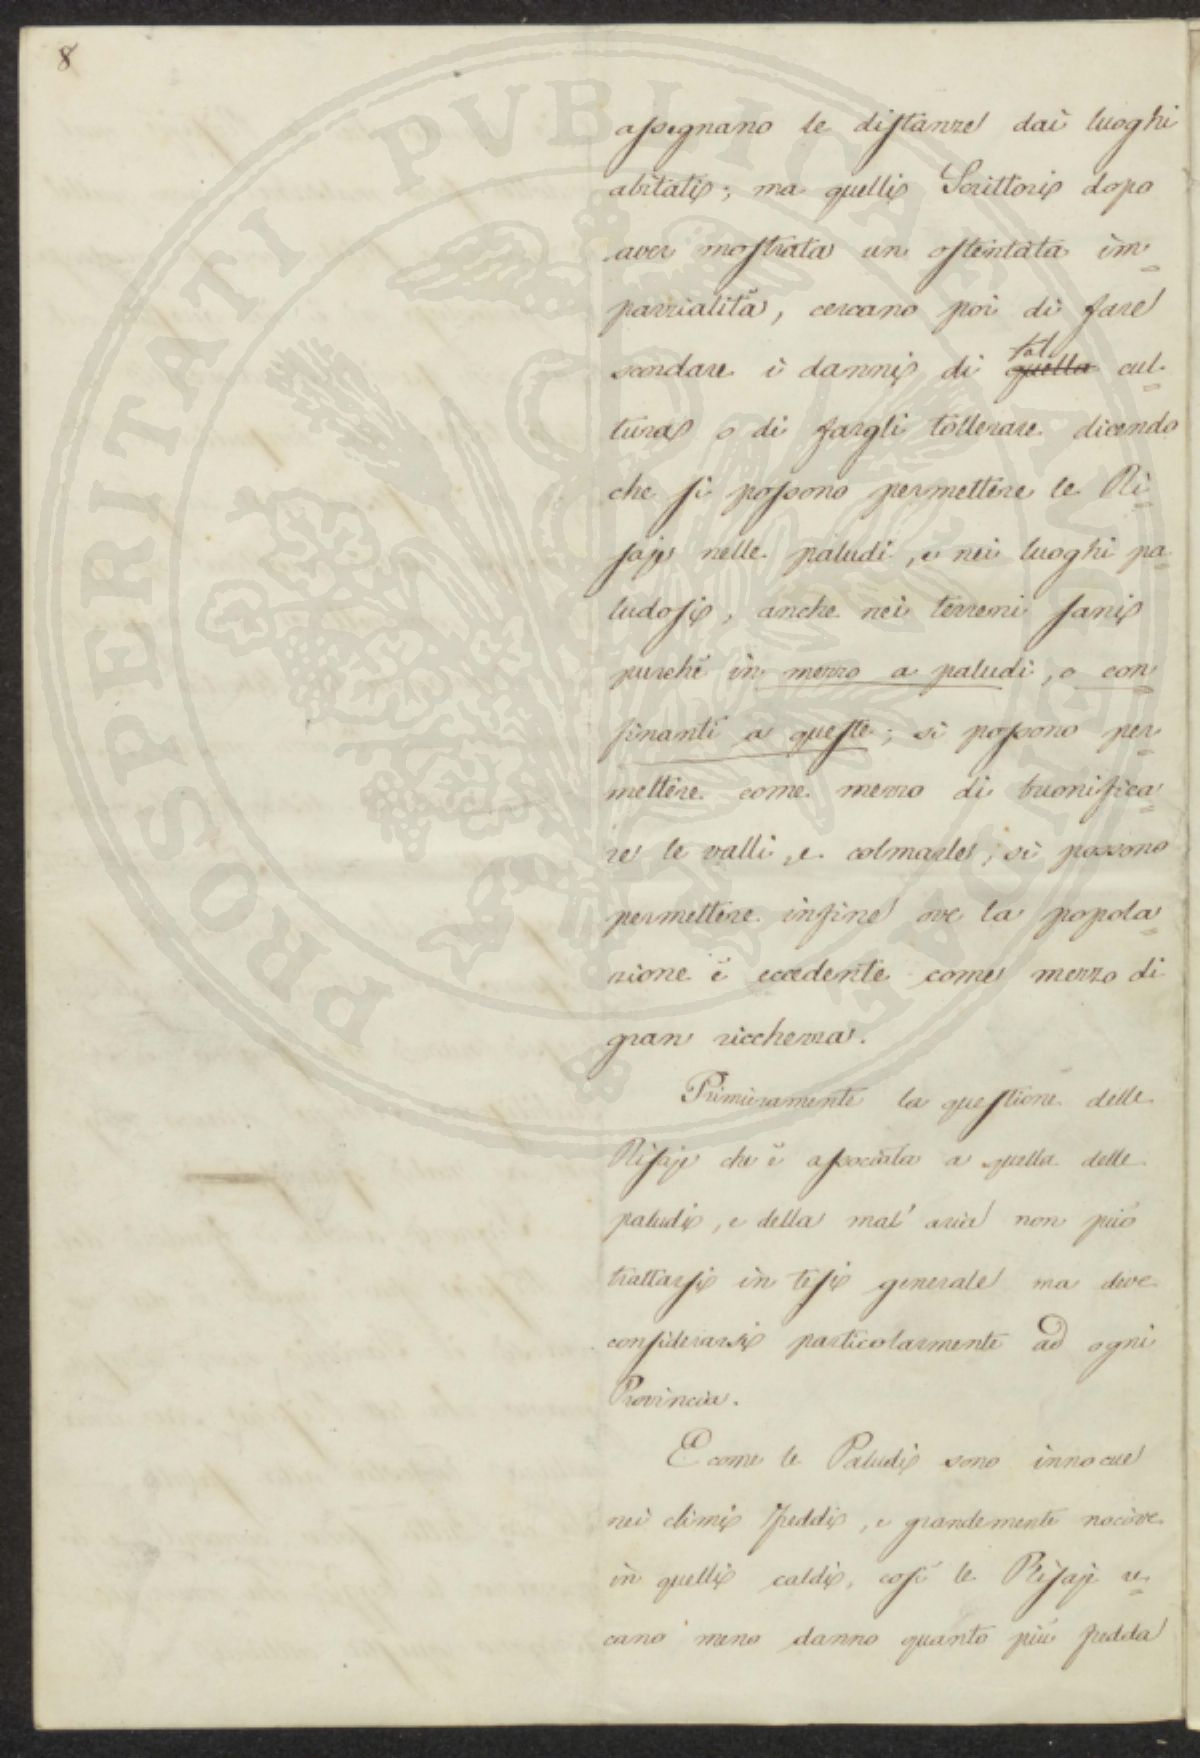 8
PROSPERITATI PVBLICAE AVGENDAE
assegnano le distanze dai luoghi
abitati; ma quelli Scrittori dopo
aver mostrata un ostentata im-
parzialità, cercano poi di fare
scordare i danni di quella tal cul-
tura o di fargli tollerare dicendo
che si possono permettere le Ri-
saje nelle paludi, e nei luoghi pa-
ludosi, anche nei terreni sani
purchè in mezzo a paludi, o con
finanti a queste; si possono per-
mettere come mezzo di buonifica-
re le valli, e colmarle; si possono
permettere infine ove la popola-
zione è eccedente come mezzo di
gran ricchezza.
Primieramente la questione delle
Risaje che è associata a quella delle
paludi, e della mal'aria non può
trattarsi in tesi generale ma deve
considerarsi particolarmente ad ogni
Provincia.
E come le Paludi sono innocue
nei climi freddi, e grandemente nocive
in quelli caldi, così le Risaje re-
cano meno danno quanto più fredda